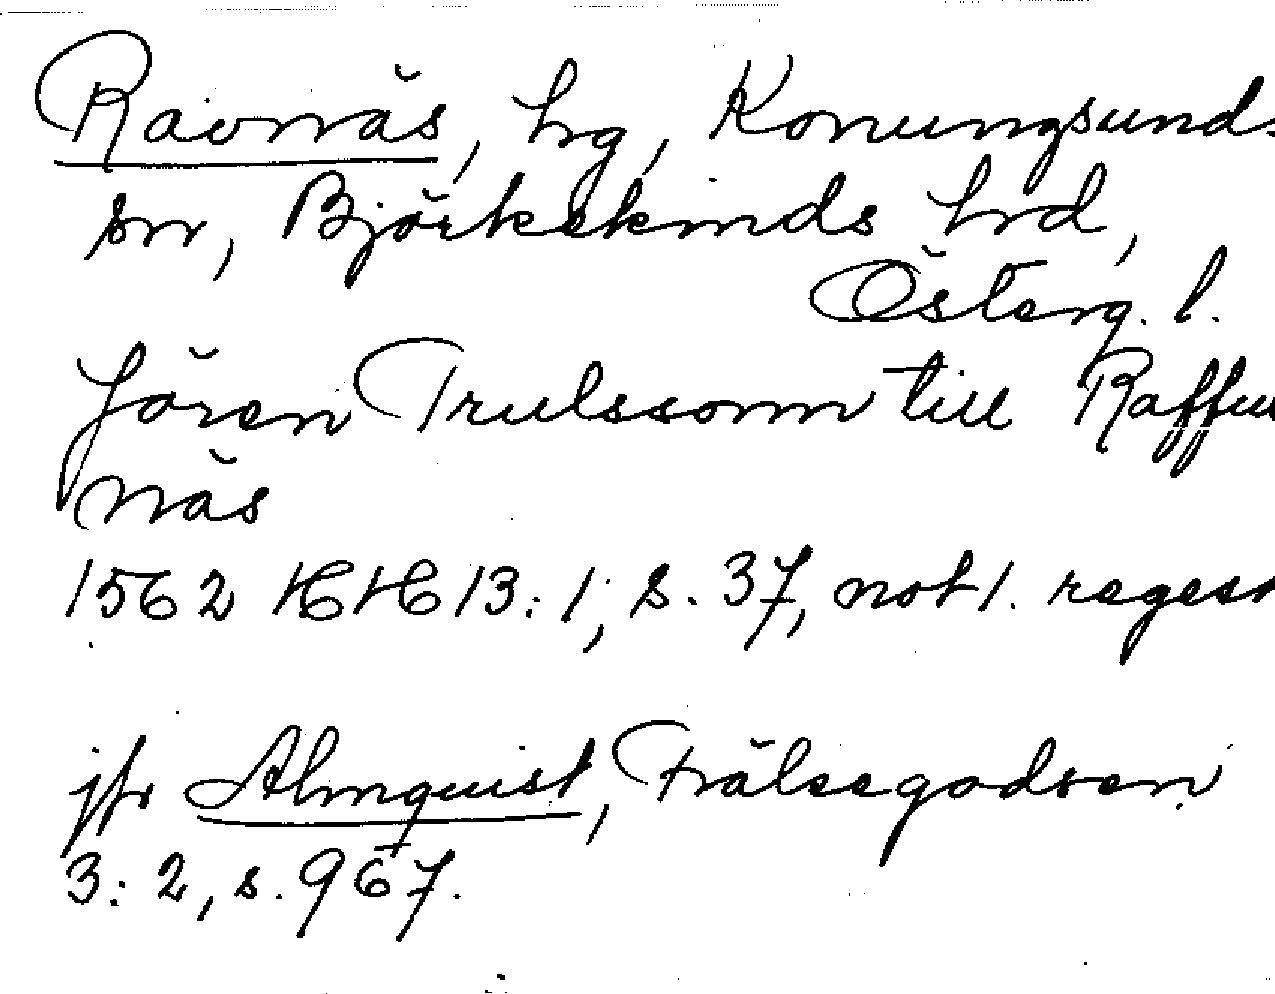 Ravnäs, hg, Konungsunds
sn, Björkekinds hrd,
Österg. l.
Jören Trulssonn till Raffu
näs
1562 HH 13:1, s. 37, not 1. regest
jfr Almquist, Frälsegodsen
3:2, s. 967.